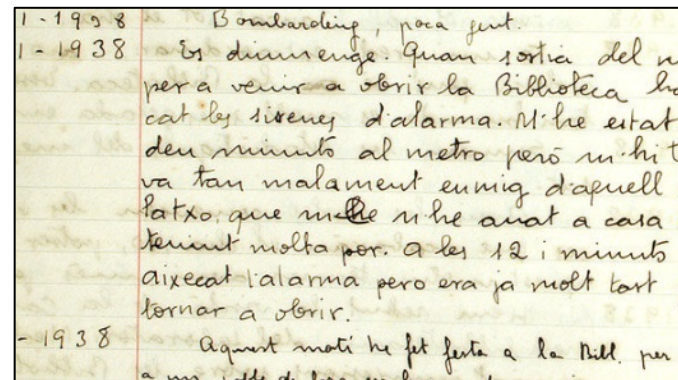 1-1938 Bombardeig, poca gent.
1-1938 Es diumenge. Quan sortia del m
per a venir a obrir la Biblioteca ha
cat les sirenes d'alarma. M'he estat
deu minuts al metro però m'hi t
va tan malament enmig d'aquell
latxo, que m'he anat a casa
tenint molta por. A les 12 i minuts
aixecat l'alarma pero era ja molt tart
tornar a obrir.
-1938 Aquest matí he fet festa a la Bibl. per
a un